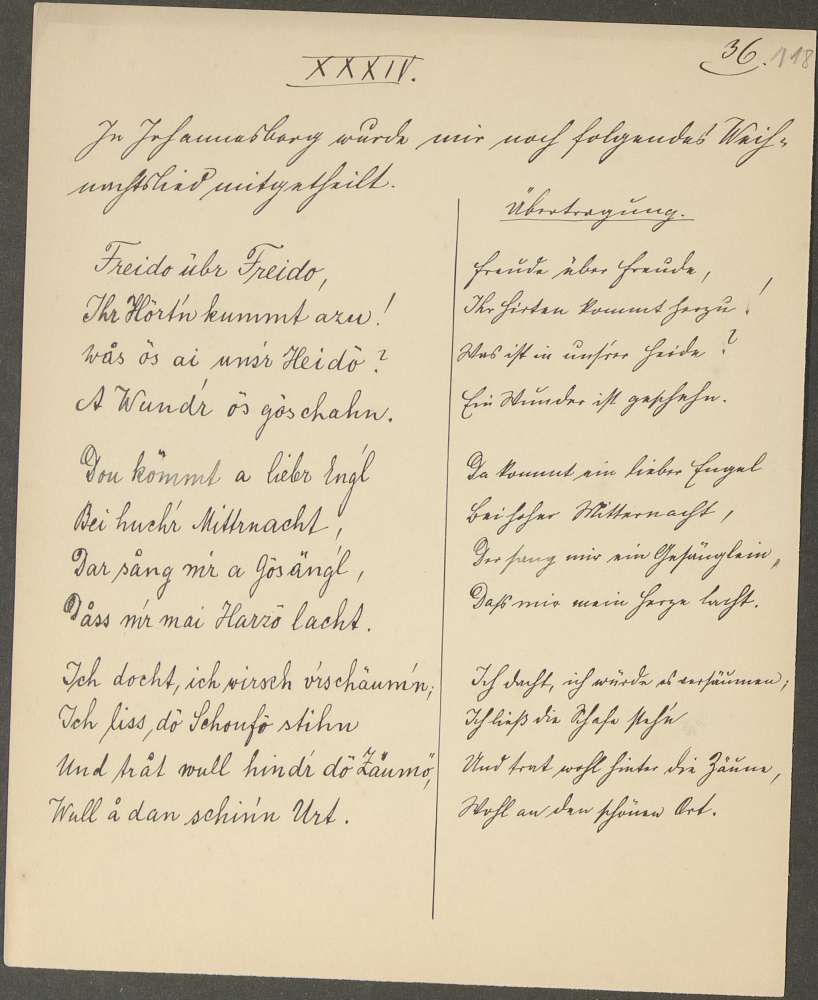 36.
118
XXXIV.
In Johannesberg wurde mir noch folgendes Weih-
nachtslied mitgetheilt.
Freido übr Freido,
Ihr Hört'n kummt azu!
Wås ös ai uns'r Heidö?
A Wund'r ös göschahn.
Dou kömmt a liebr Eng'l
Bei huch'r Mittrnacht,
Dar sång m'r a Gösäng'l,
Dåss m'r mai Harzö lacht.
Ich docht, ich wirsch v'rschäum'n;
Ich liss, dö Schoufö stihn
Und tråt wull hind'r dö Zäumö,
Wull å dan schin'n Urt.
Übertragung.
Freude über Freude,
Ihr Hirten kommt herzu!
Was ist in unsrer Heide?
Ein Wunder ist geschehn.
Da kommt ein lieber Engel
Bei hoher Mitternacht,
Der sang mir ein Gesänglein,
Daß mir mein Herze lacht.
Ich dacht, ich würde es versäumen;
Ich ließ die Schafe stehn
Und trat wohl hinter die Zäune,
Wohl an den schönen Ort.